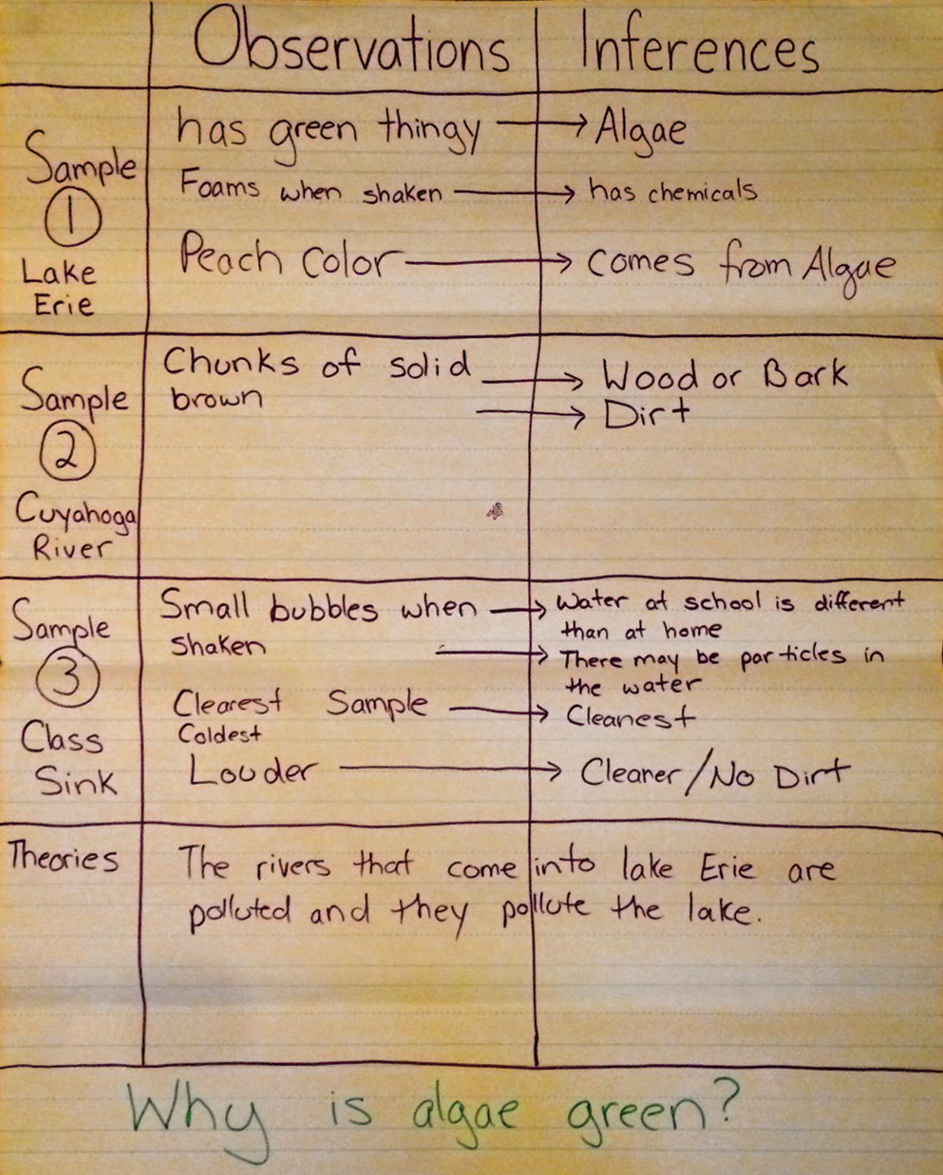 Observations Inferences
Sample
1
Lake
Erie
has green thingy → Algae
Foams when shaken → has chemicals
Peach Color → Comes from Algae
Sample
2
Cuyahoga
River
Chunks of solid → Wood or Bark
brown → Dirt
Sample
3
Class
Sink
Small bubbles when → Water at school is different
than at home
shaken → There may be particles in
the water
Clearest Sample → Cleanest
Coldest
Louder → Cleaner/No Dirt
Theories
The rivers that come into lake Erie are
polluted and they pollute the lake.
Why is algae green?